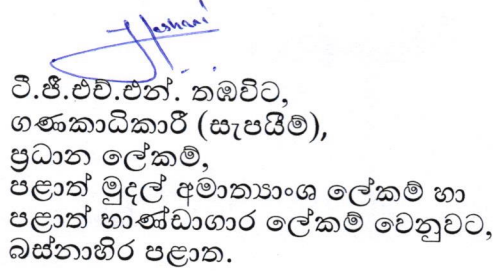 ටී.ජී.එච්.එන්. තඹවිට,
ගණකාධිකාරී (සැපයීම්),
ප්‍රධාන ලේකම්,
පළාත් මුදල් අමාත්‍යාංශ ලේකම් හා
පළාත් භාණ්ඩාගාර ලේකම් වෙනුවට,
බස්නාහිර පළාත.